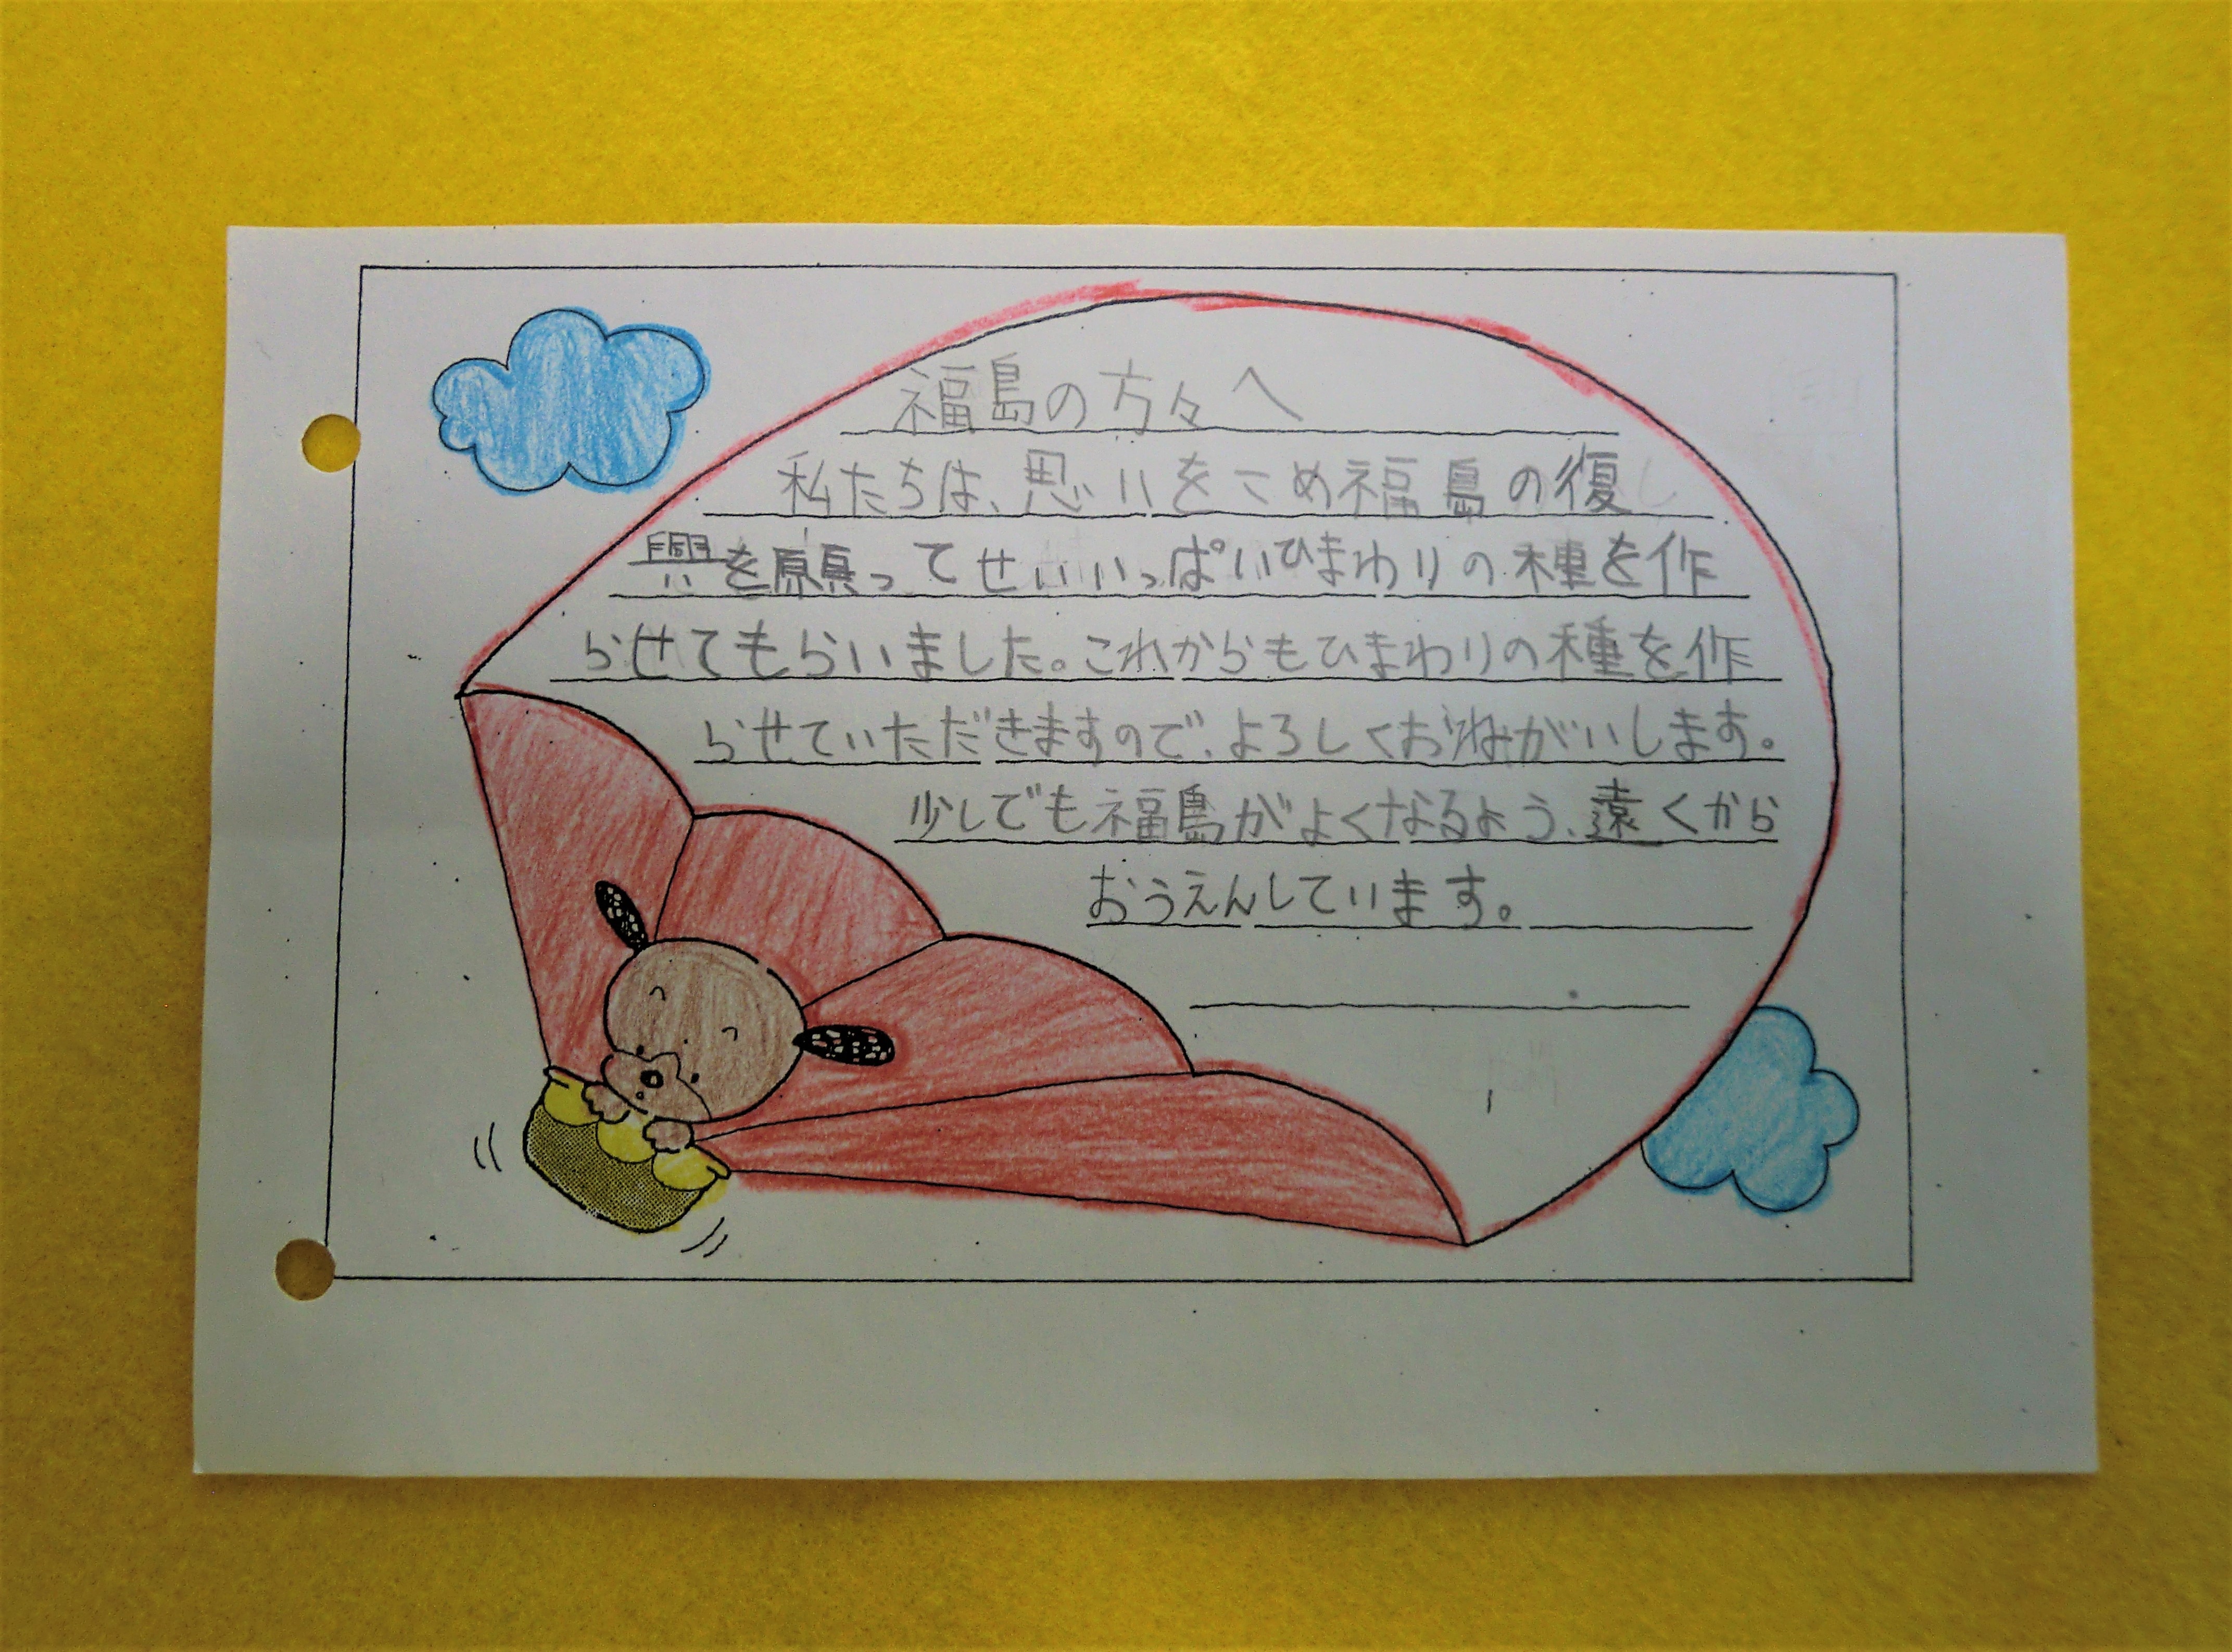 福島の方々へ
私たちは、思いをこめ福島の復
興を願ってせいいっぱいひまわりの種を作
らせてもらいました。これからもひまわりの種を作
らせていただきますので、よろしくおねがいします。
少しでも福島がよくなるよう、遠くから
おうえんしています。